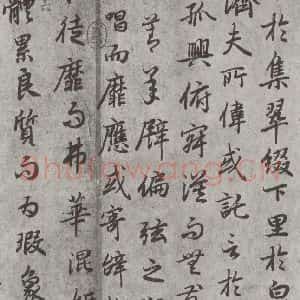 於集翠綴下里於白
濟夫所偉或託言於
孤興俯寂漠而無友
莫承譬偏弦之
唱而靡應或寄辭於
徒靡而弗華混妍
體累良質而為瑕象
shufawang.cn